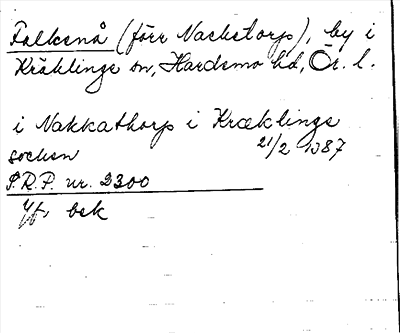 Falksnå (förr Nackstorp), by i
Kräklinge sn, Hardemo hd, Ör. l.
i Nakkathorp i Kræklinge
socken 21/2 1387
S.R.P. nr. 2300
Yt. bsk